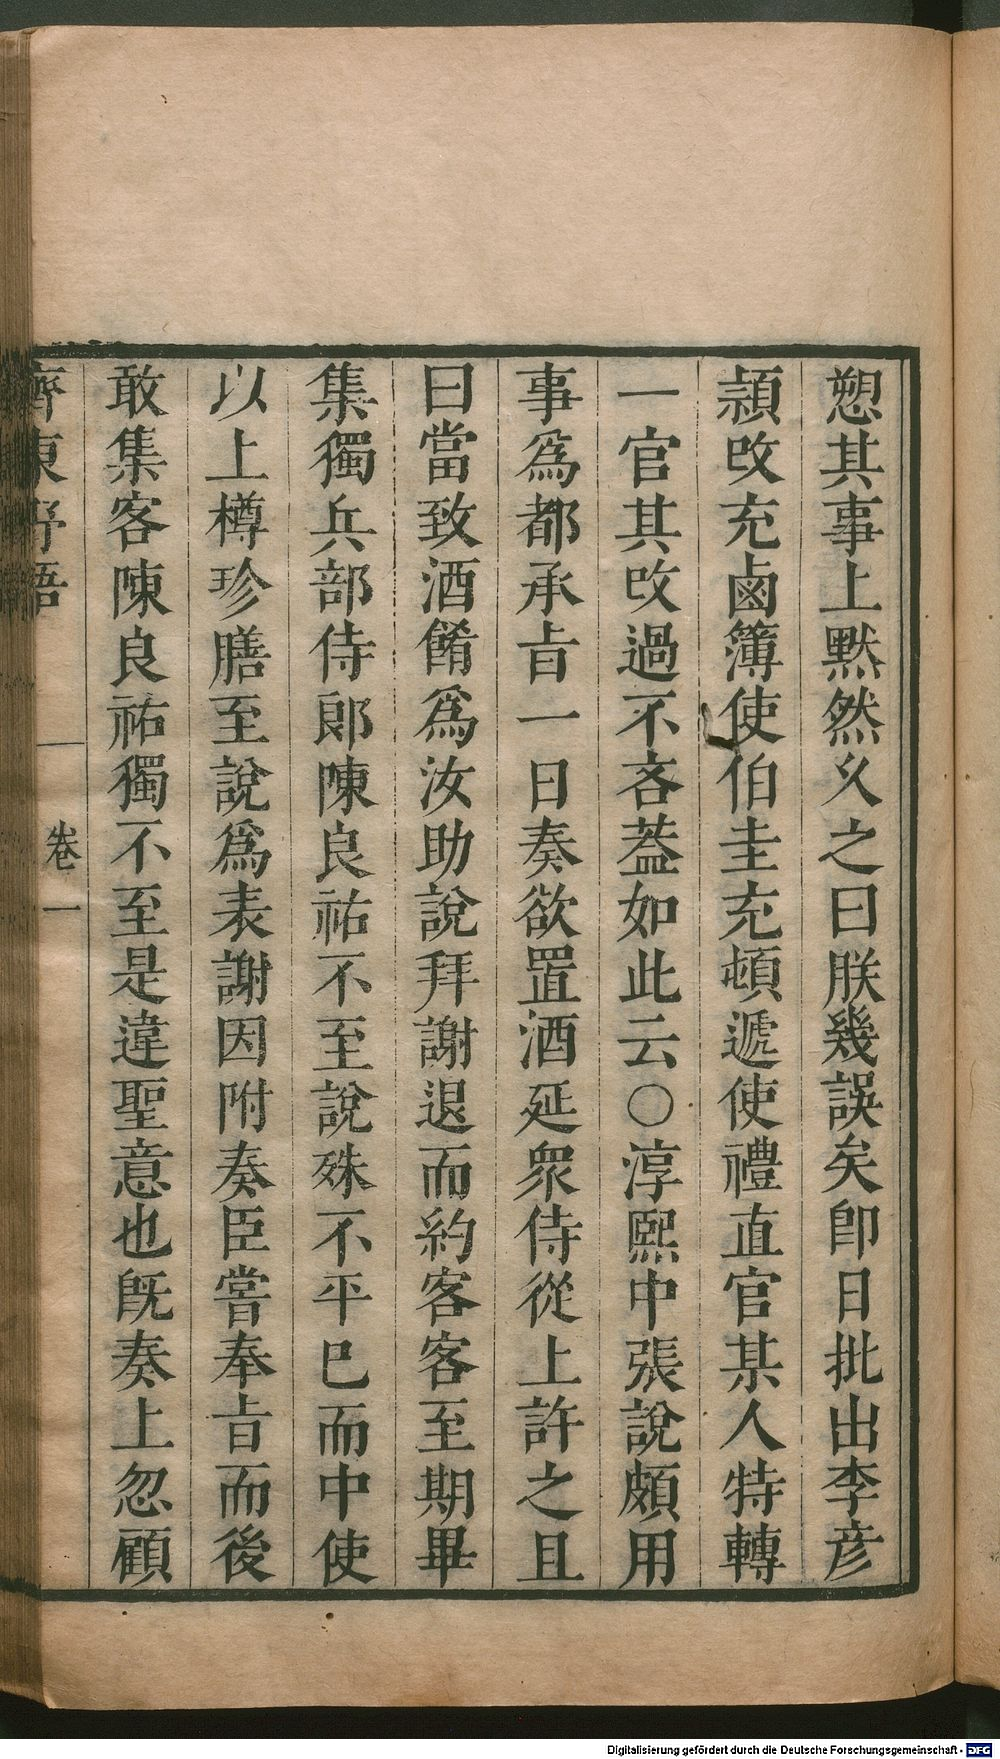 愬其事上黙然乆之曰朕幾誤矣卽日批出李彦
頴改充鹵簿使伯圭充頓遞使禮直官某人特轉
一官其改過不吝葢如此云○淳熙中張說頗用
事爲都承㫖一日奏欲置酒延衆侍從上許之且
曰當致酒餚爲汝助說拜謝退而約客客至期畢
集獨兵部侍郞陳良祐不至說殊不平巳而中使
以上樽珍膳至說爲表謝因附奏臣嘗奉㫖而後
敢集客陳良祐獨不至是違聖意也旣奏上忽顧
齊東野語
卷一
Digitalisierung gefördert durch die Deutsche Forschungsgemeinschaft - DFG